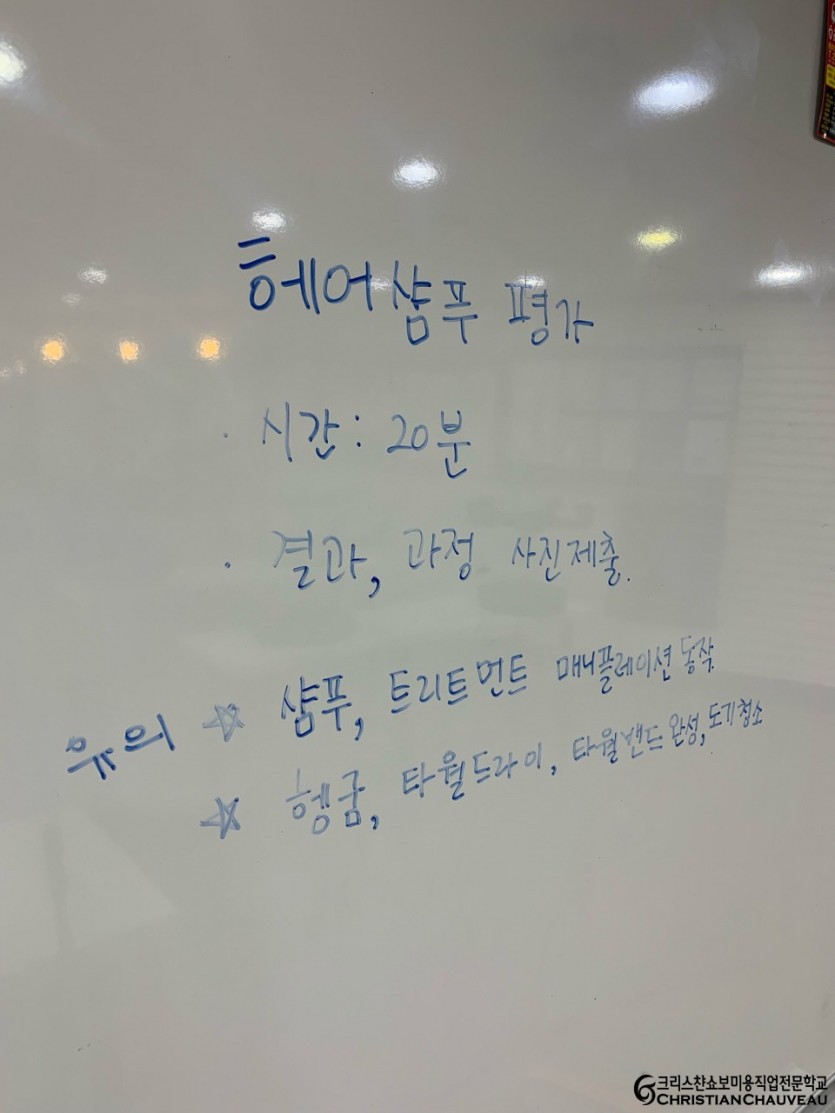 헤어샴푸 평가
· 시간: 20분
· 결과, 과정 사진제출.
유의 ☆ 샴푸, 트리트먼트 매니플레이션 동작
☆ 헹굼, 타월드라이, 타월밴드 완성, 도기청소
크리스챤쇼보미용직업전문학교
CHRISTIANCHAUVEAU